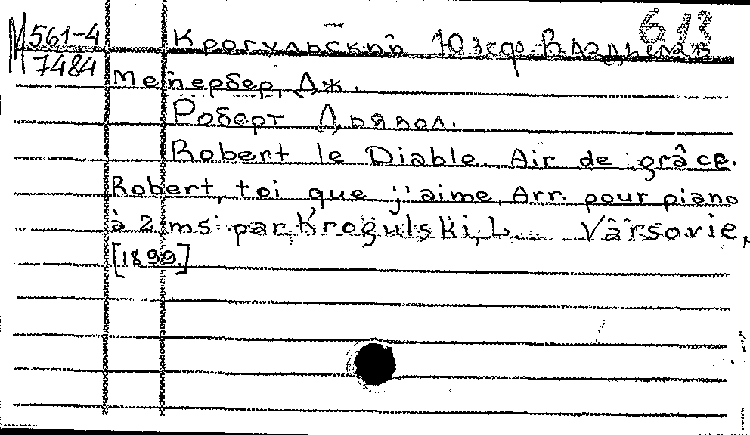 М 561-4
7484
613
Крогульский Юзеф Владислав
Мейербер, Дж.
Роберт Дьявол.
Robert le Diable. Air de grâce.
Robert, toi que j'aime, Arr. pour piano
à 2 ms par Krogulski, L. Varsovie,
[1890.]